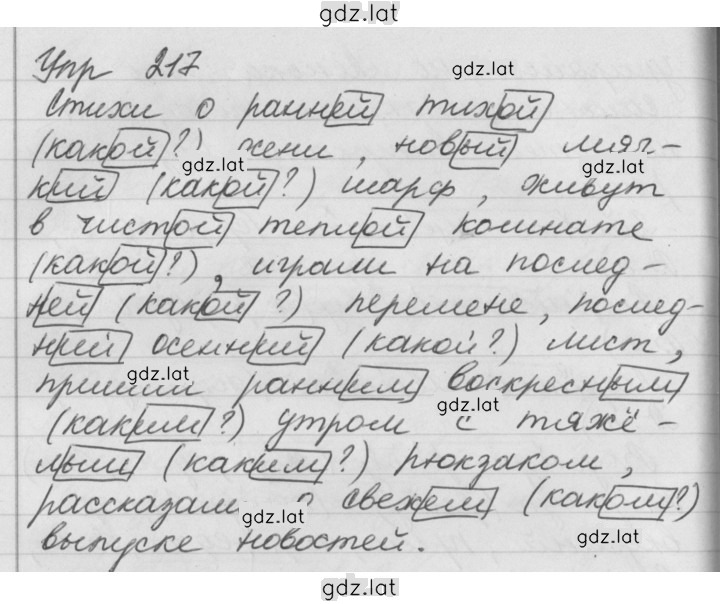 gdz.lat
Упр 217
gdz.lat
Стихи о ранней тихой
(какой?) жени, новый мяг-
gdz.lat
gdz.lat
кий (какой?) шарф, живут
в чистой теплой комнате
(какой?), играли на послед-
ней (какой?) перемене, послед-
ний осенний (какой?) лист,
gdz.lat
пришли ранним воскресным
(каким?) утром с тяжё-
gdz.lat
лым (каким?) рюкзаком,
рассказали свежем (каком?)
gdz.lat
выпуске новостей.
gdz.lat
gdz.lat